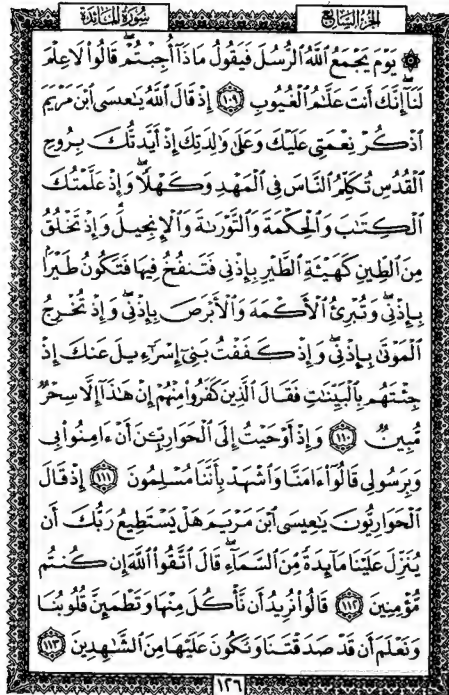 سُورَةُ المَائِدَة
الجُزءُ السَّابِعُ
۞ يَوْمَ يَجْمَعُ اللَّهُ الرُّسُلَ فَيَقُولُ مَاذَا أُجِبْتُمْ ۖ قَالُوا۟ لَا عِلْمَ
لَنَا ۖ إِنَّكَ أَنتَ عَلَّٰمُ الْغُيُوبِ ١٠٩ إِذْ قَالَ اللَّهُ يَٰعِيسَى ابْنَ مَرْيَمَ
اذْكُرْ نِعْمَتِي عَلَيْكَ وَعَلَىٰ وَٰلِدَتِكَ إِذْ أَيَّدتُّكَ بِرُوحِ
الْقُدُسِ تُكَلِّمُ النَّاسَ فِي الْمَهْدِ وَكَهْلًا ۖ وَإِذْ عَلَّمْتُكَ
الْكِتَٰبَ وَالْحِكْمَةَ وَالتَّوْرَىٰةَ وَالْإِنجِيلَ ۖ وَإِذْ تَخْلُقُ
مِنَ الطِّينِ كَهَيْـَٔةِ الطَّيْرِ بِإِذْنِي فَتَنفُخُ فِيهَا فَتَكُونُ طَيْرًۢا
بِإِذْنِي ۖ وَتُبْرِئُ الْأَكْمَهَ وَالْأَبْرَصَ بِإِذْنِي ۖ وَإِذْ تُخْرِجُ
الْمَوْتَىٰ بِإِذْنِي ۖ وَإِذْ كَفَفْتُ بَنِيٓ إِسْرَٰٓءِيلَ عَنكَ إِذْ
جِئْتَهُم بِالْبَيِّنَٰتِ فَقَالَ الَّذِينَ كَفَرُوا۟ مِنْهُمْ إِنْ هَٰذَآ إِلَّا سِحْرٌ
مُّبِينٌ ١١٠ وَإِذْ أَوْحَيْتُ إِلَى الْحَوَارِيِّـۧنَ أَنْ ءَامِنُوا۟ بِي
وَبِرَسُولِي قَالُوٓا۟ ءَامَنَّا وَاشْهَدْ بِأَنَّنَا مُسْلِمُونَ ١١١ إِذْ قَالَ
الْحَوَارِيُّونَ يَٰعِيسَى ابْنَ مَرْيَمَ هَلْ يَسْتَطِيعُ رَبُّكَ أَن
يُنَزِّلَ عَلَيْنَا مَآئِدَةً مِّنَ السَّمَآءِ ۖ قَالَ اتَّقُوا۟ اللَّهَ إِن كُنتُم
مُّؤْمِنِينَ ١١٢ قَالُوا۟ نُرِيدُ أَن نَّأْكُلَ مِنْهَا وَتَطْمَئِنَّ قُلُوبُنَا
وَنَعْلَمَ أَن قَدْ صَدَقْتَنَا وَنَكُونَ عَلَيْهَا مِنَ الشَّٰهِدِينَ ١١٣
١٢٦